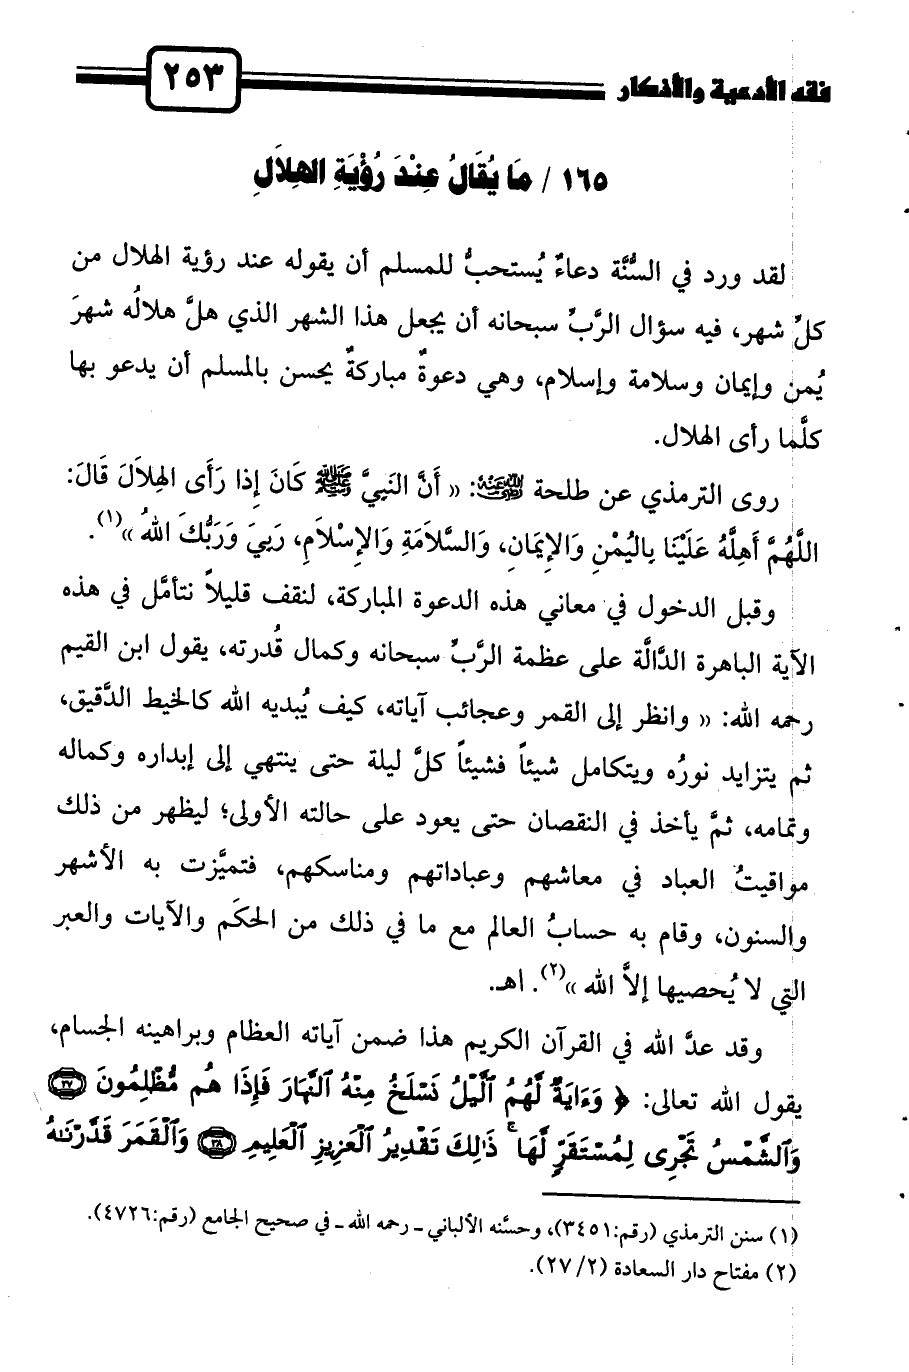 فقه الأدعية والأذكار
٢٥٣
١٦٥ / مَا يُقَالُ عِنْدَ رُؤْيَةِ الهِلاَلِ
لقد ورد في السُّنَّة دعاءٌ يُستحبُّ للمسلم أن يقوله عند رؤية الهلال من
كلِّ شهر، فيه سؤال الرَّبِّ سبحانه أن يجعل هذا الشهر الذي هلَّ هلالُه شهرَ
يُمن وإيمان وسلامة وإسلام، وهي دعوةٌ مباركةٌ يحسن بالمسلم أن يدعو بها
كلَّما رأى الهلال.
روى الترمذي عن طلحة رضي الله عنه: « أَنَّ النَبِيَّ ﷺ كَانَ إِذَا رَأَى الهِلاَلَ قَالَ:
اللَّهُمَّ أَهِلَّهُ عَلَيْنَا بِاليُمْنِ وَالإِيمَانِ، وَالسَّلاَمَةِ وَالإِسْلاَمِ، رَبِيَ وَرَبُّكَ اللهُ »(١).
وقبل الدخول في معاني هذه الدعوة المباركة، لنقف قليلاً نتأمَّل في هذه
الآية الباهرة الدَّالَّة على عظمة الرَّبِّ سبحانه وكمال قُدرته، يقول ابن القيم
رحمه الله: « وانظر إلى القمر وعجائب آياته، كيف يُبديه الله كالخيط الدَّقيق،
ثم يتزايد نورُه ويتكامل شيئاً فشيئاً كلَّ ليلة حتى ينتهي إلى إبداره وكماله
وتمامه، ثمَّ يأخذ في النقصان حتى يعود على حالته الأولى؛ ليظهر من ذلك
مواقيتُ العباد في معاشهم وعباداتهم ومناسكهم، فتميَّزت به الأشهر
والسنون، وقام به حسابُ العالم مع ما في ذلك من الحكَم والآيات والعبر
التي لا يُحصيها إلاَّ الله »(٢). اهـ.
وقد عدَّ الله في القرآن الكريم هذا ضمن آياته العظام وبراهينه الجسام،
يقول الله تعالى: ﴿ وَءَايَةٌ لَّهُمُ ٱلَّيْلُ نَسْلَخُ مِنْهُ ٱلنَّهَارَ فَإِذَا هُم مُّظْلِمُونَ ٣٧
وَٱلشَّمْسُ تَجْرِى لِمُسْتَقَرٍّ لَّهَا ۚ ذَٰلِكَ تَقْدِيرُ ٱلْعَزِيزِ ٱلْعَلِيمِ ٣٨ وَٱلْقَمَرَ قَدَّرْنَٰهُ
(١) سنن الترمذي (رقم:٣٤٥١)، وحسَّنه الألباني ـ رحمه الله ـ في صحيح الجامع (رقم:٤٧٢٦).
(٢) مفتاح دار السعادة (٢/ ٢٧).